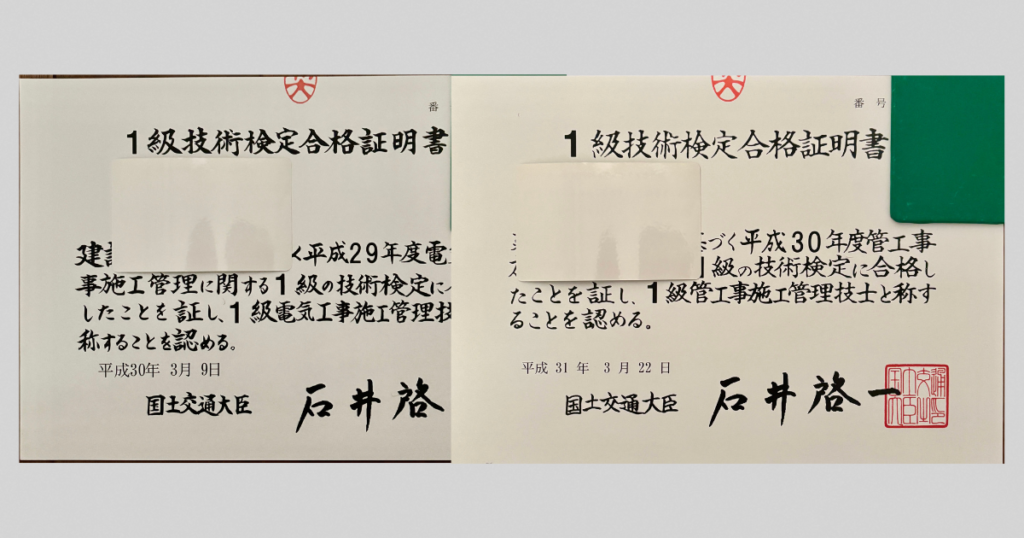 番
1級技術検定合格証明書
建 く平成29年度電
事施工管理に関する1級の技術検定に
したことを証し、1級電気工事施工管理技
称することを認める。
平成30年 3月 9日
国土交通大臣 石井啓
番 号
1級技術検定合格証明書
づく平成30年度管工事
級の技術検定に合格し
たことを証し、1級管工事施工管理技士と称す
ることを認める。
平成 31 年 3 月 22 日
国土交通大臣 石井啓一